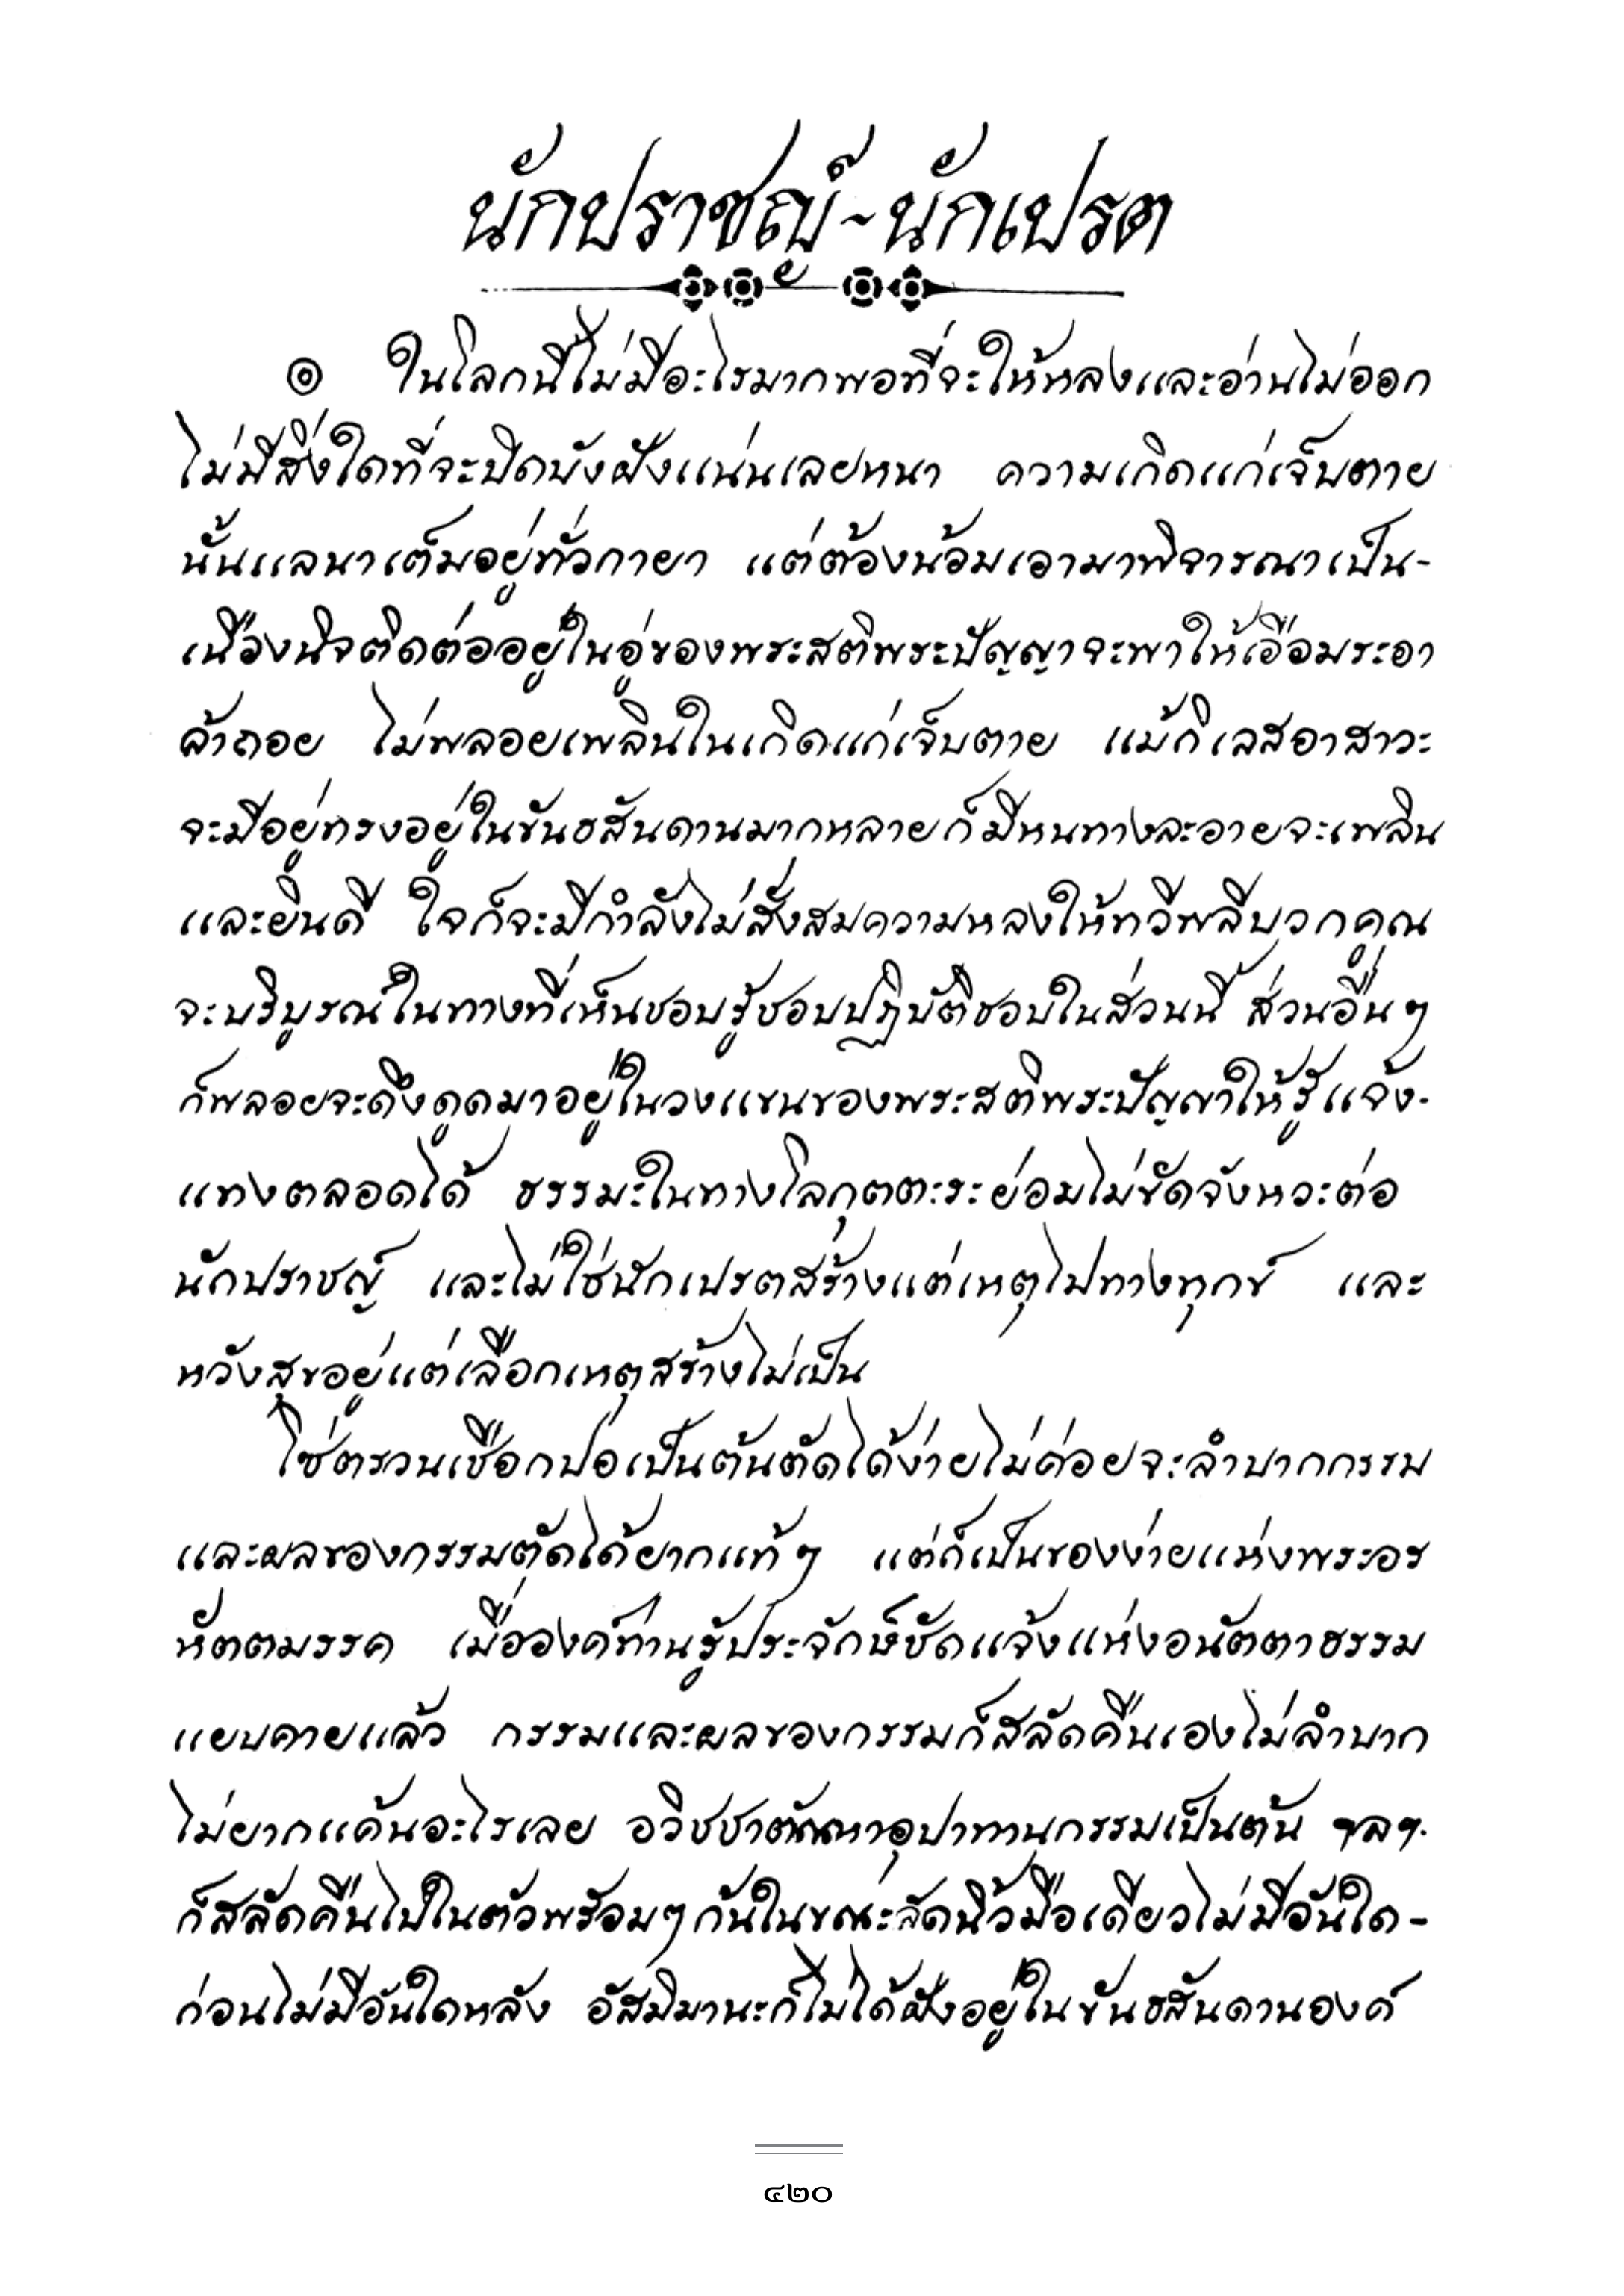 นักปราชญ์-นักเปรต
๏ ในโลกนี้ไม่มีอะไรมากพอที่จะให้หลงและอ่านไม่ออก
ไม่มีสิ่งใดที่จะปิดบังฝังแน่นเลยหนา ความเกิดแก่เจ็บตาย
นั้นแลนาเต็มอยู่ทั่วกายา แต่ต้องน้อมเอามาพิจารณาเป็น-
เนืองนิจติดต่ออยู่ในอู่ของพระสติพระปัญญาจะพาให้เอือมระอา
ล้าถอย ไม่พลอยเพลินในเกิดแก่เจ็บตาย แม้กิเลสอาสาวะ
จะมีอยู่ทรงอยู่ในขันธสันดานมากหลายก็มีหนทางละอายจะเพลิน
และยินดี ใจก็จะมีกำลังไม่สั่งสมความหลงให้ทวีพลีบวกคูณ
จะบริบูรณ์ในทางที่เห็นชอบรู้ชอบปฏิบัติชอบในส่วนนี้ ส่วนอื่นๆ
ก็พลอยจะดึงดูดมาอยู่ในวงแขนของพระสติพระปัญญาให้รู้แจ้ง-
แทงตลอดได้ ธรรมะในทางโลกุตตะระย่อมไม่ขัดจังหวะต่อ
นักปราชญ์ และไม่ใช่นักเปรตสร้างแต่เหตุไปทางทุกข์ และ
หวังสุขอยู่แต่เลือกเหตุสร้างไม่เป็น
โซ่ตรวนเชือกป่อเป็นต้นตัดได้ง่ายไม่ค่อยจะลำบากกรรม
และผลของกรรมตัดได้ยากแท้ๆ แต่ก็เป็นของง่ายแห่งพระอร
หัตตมรรค เมื่อองค์ท่านรู้ประจักษ์ชัดแจ้งแห่งอนัตตาธรรม
แยบคายแล้ว กรรมและผลของกรรมก็สลัดคืนเองไม่ลำบาก
ไม่ยากแค้นอะไรเลย อวิชชาตัณหาอุปาทานกรรมเป็นต้น ฯลฯ
ก็สลัดคืนไปในตัวพร้อมๆกันในขณะลัดนิ้วมือเดียวไม่มีอันใด-
ก่อนไม่มีอันใดหลัง อัสมิมานะก็ไม่ได้ฝังอยู่ในขันธสันดานองค์
๔๒๐